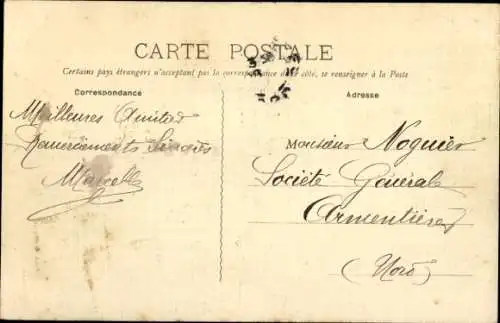 CARTE POSTALE
Certains pays étrangers n'acceptant pas la correspondance de ce côté, se renseigner à la Poste
Correspondance
Adresse
Meilleures Amitiés
Remerciements Sincères
Marcelle
Monsieur Noguier
Société Générale
Armentières
(Nord)